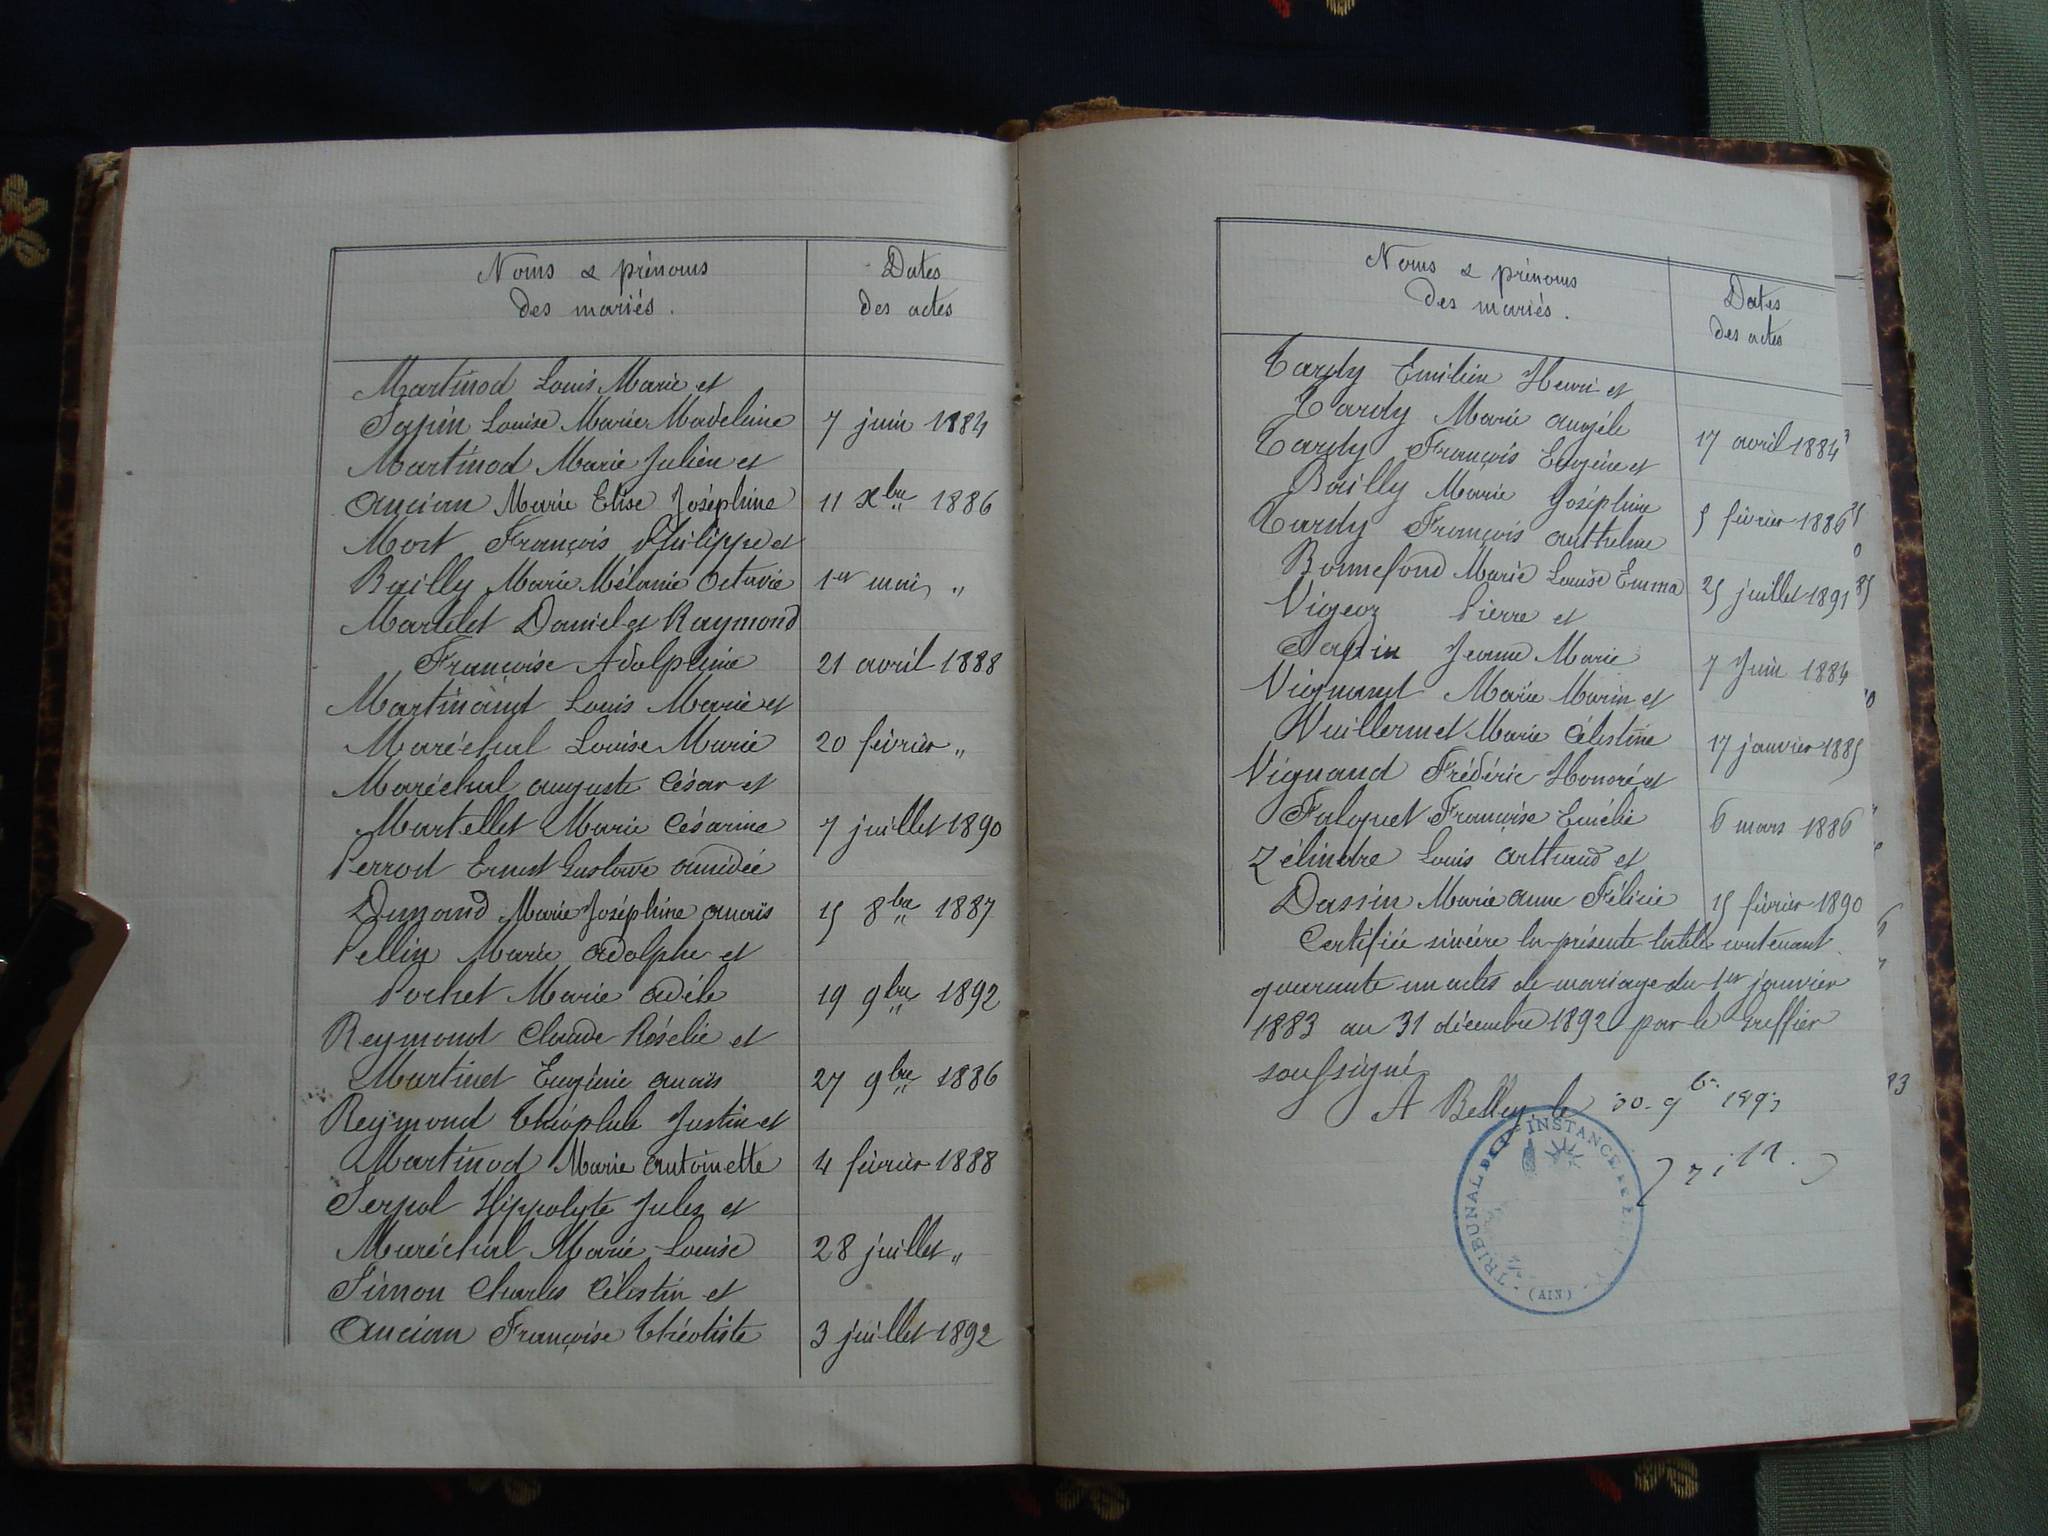 Noms & prénoms
des mariés.
Dates
des actes
Martinod Louis Marie et
Sapin Louise Marie Madeleine 7 juin 1884
Martinod Marie Julien et
Ancian Marie Elise Joséphine 11 Xbre 1886
Mort François Philippe et
Bailly Marie Mélanie Octavie 1er mai "
Martelet Daniel et Raymond
Françoise Adolphine 21 avril 1888
Martinand Louis Marie et
Maréchal Louise Marie 20 février "
Maréchal Auguste César et
Martellet Marie Césarine 7 juillet 1890
Perrod Ernest Gustave Amédée
Dumond Marie Joséphine Anaïs 15 8bre 1887
Pellin Marie Adolphe et
Pochet Marie Adèle 19 9bre 1892
Reymond Claude Rosélie et
Martinet Eugénie Anaïs 27 9bre 1886
Reymond Théophile Justin et
Martinod Marie Antoinette 4 février 1888
Serpol Hippolyte Jules et
Maréchal Marie Louise 28 juillet "
Simon Charles Célestin et
Ancian Françoise Théotiste 3 juillet 1892
Noms & prénoms
des mariés.
Dates
des actes
Tardy Emilien Henri et
Tardy Marie Angèle 17 avril 1884
Tardy François Eugène et
Bailly Marie Joséphine 5 février 1886
Tardy François Anthelme
Bonnefond Marie Louise Emma 25 juillet 1891
Vigeoz Pierre et
Sapin Jeanne Marie 7 Juin 1884
Vignand Marie Marin et
Vuillermet Marie Célestine 17 janvier 1885
Vignand Frédéric Honoré et
Falquet Françoise Emélie 6 mars 1886
Zélindre Louis Arthaud et
Dassin Marie Anne Félicie 15 février 1890
Certifiée sincère la présente table contenant
quarante un actes de mariage du 1er janvier
1883 au 31 décembre 1892 par le Greffier
soussigné
A Belley, le 30 - 9bre 1893
TRIBUNAL DE 1re INSTANCE DE
(AIN)